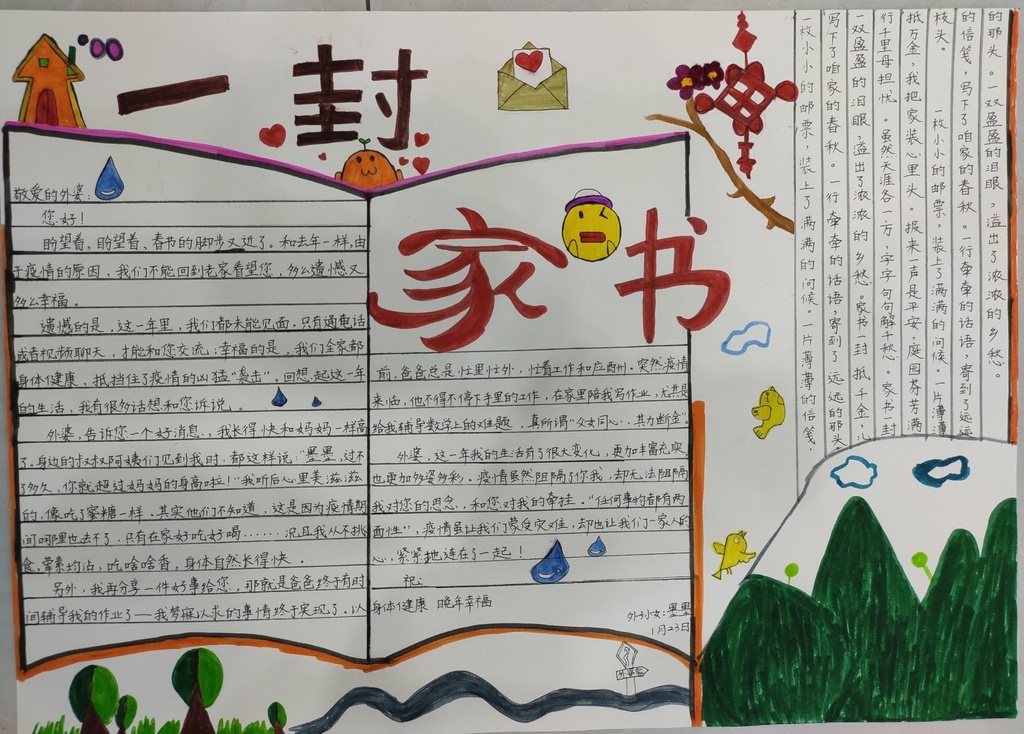 一封
家书
敬爱的外婆：
您好！
盼望着，盼望着，春节的脚步又近了。和去年一样，由
于疫情的原因，我们不能回到老家看望您，多么遗憾又
多么幸福。
遗憾的是，这一年里，我们都未能见面，只有通电话
或者视频聊天，才能和您交流；幸福的是，我们全家都
身体健康，抵挡住了疫情的凶猛“袭击”，回想起这一年
的生活，我有很多话想和您诉说。
外婆，告诉您一个好消息，我长得快和妈妈一样高
了，身边的叔叔阿姨们见到我时，都这样说：“墨墨，过不
了多久，你就超过妈妈的身高啦！”我听后心里美滋滋
的，像吃了蜜糖一样。其实他们不知道，这是因为疫情期
间哪里也去不了，只有在家好吃好喝……，况且我从不挑
食，荤素均沾，吃啥啥香，身体自然长得快。
另外，我再分享一件好事给您，那就是爸爸终于有时
间辅导我的作业了——我梦寐以求的事情终于实现了。以
前，爸爸总是忙里忙外，忙着工作和应酬，突然疫情
来临，他不得不停下手里的工作，在家里陪我写作业，尤其是
给我辅导数学上的难题，真所谓“父女同心，其力断金”。
外婆，这一年我的生活有了很大变化，更加丰富充实
也更加多姿多彩。疫情虽然阻隔了你我，却无法阻隔
我对您的思念，和您对我的牵挂。“任何事物都有两
面性”，疫情虽让我们蒙受灾难，却也让我们一家人的
心，紧紧地连在了一起！
祝：
身体健康 晚年幸福
外孙女：墨墨
1月23日
的那头。一双盈盈的泪眼，溢出了浓浓的乡愁。
的信笺，写下了咱家的春秋。一行牵牵的话语，寄到了远远
枝头。 一枚小小的邮票，装上了满满的问候。一片薄薄
抵万金，我把家装心里头。报来一声是平安，庭园芬芳满
行千里母担忧。虽然天涯各一方，字字句句解千愁。家书一封
一双盈盈的泪眼，溢出了浓浓的乡愁。家书一封抵千金，儿
写下了咱家的春秋。一行牵牵的话语，寄到了远远的那头
一枚小小的邮票，装上了满满的问候。一片薄薄的信笺，